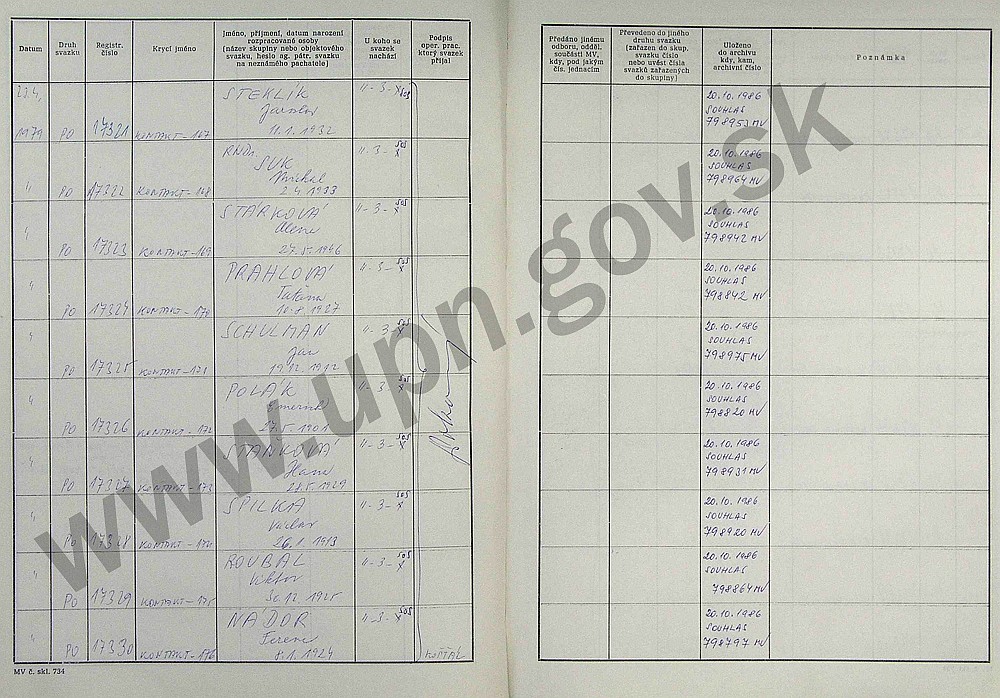 Datum
Druh svazku
Registr. číslo
Krycí jméno
Jméno, příjmení, datum narození
rozpracované osoby
(název skupiny nebo objektového
svazku, heslo ag. pátr. svazku
na neznámého pachatele)
U koho se
svazek
nachází
Podpis
oper. prac.
který svazek
přijal
Předáno jinému
odboru, odděl.
součásti MV,
kdy, pod jakým
čís. jednacím
Převedeno do jiného
druhu svazku
(zařazen do skup.
svazku číslo
nebo uvést čísla
svazků zařazených
do skupiny)
Uloženo
do archivu
kdy, kam,
archivní číslo
Poznámka
23.4.
STEKLÍK II-3-X 505 20.10.1986
Jaroslav SOUHLAS
1979 PO 17321 KONTAKT-167 11.1.1932 798953 MV
RNDr. 505
SUK II-3-X 20.10.1986
Michal SOUHLAS
" PO 17322 KONTAKT-168 2.4.1933 798964 MV
STÁRKOVÁ II-3-X 505 20.10.1986
Alena SOUHLAS
" PO 17323 KONTAKT-169 27.5.1946 798942 MV
PRAHLOVÁ II-3-X 505 20.10.1986
Taťána SOUHLAS
" PO 17324 KONTAKT-170 10.8.1927 798842 MV
SCHULMAN II-3-X 505 20.10.1986
Jan SOUHLAS
" PO 17325 KONTAKT-171 19.12.1912 798975 MV
POLÁK II-3-X 505 20.10.1986
Emerich SOUHLAS
" PO 17326 KONTAKT-172 27.5.1901 798820 MV
STANKOVÁ II-3-X 505 20.10.1986
Hana SOUHLAS
" PO 17327 KONTAKT-173 28.5.1929 798931 MV
SPILKA II-3-X 505 20.10.1986
Václav SOUHLAS
" PO 17328 KONTAKT-174 26.1.1913 798920 MV
ROUBAL II-3-X 505 20.10.1986
Viktor SOUHLAS
" PO 17329 KONTAKT-175 30.12.1925 798864 MV
NÁDOR II-3-X 505 20.10.1986
Ferenc SOUHLAS
" PO 17330 KONTAKT-176 8.1.1924 KOŠŤÁL 798797 MV
MV č. skl. 734
www.upn.gov.sk